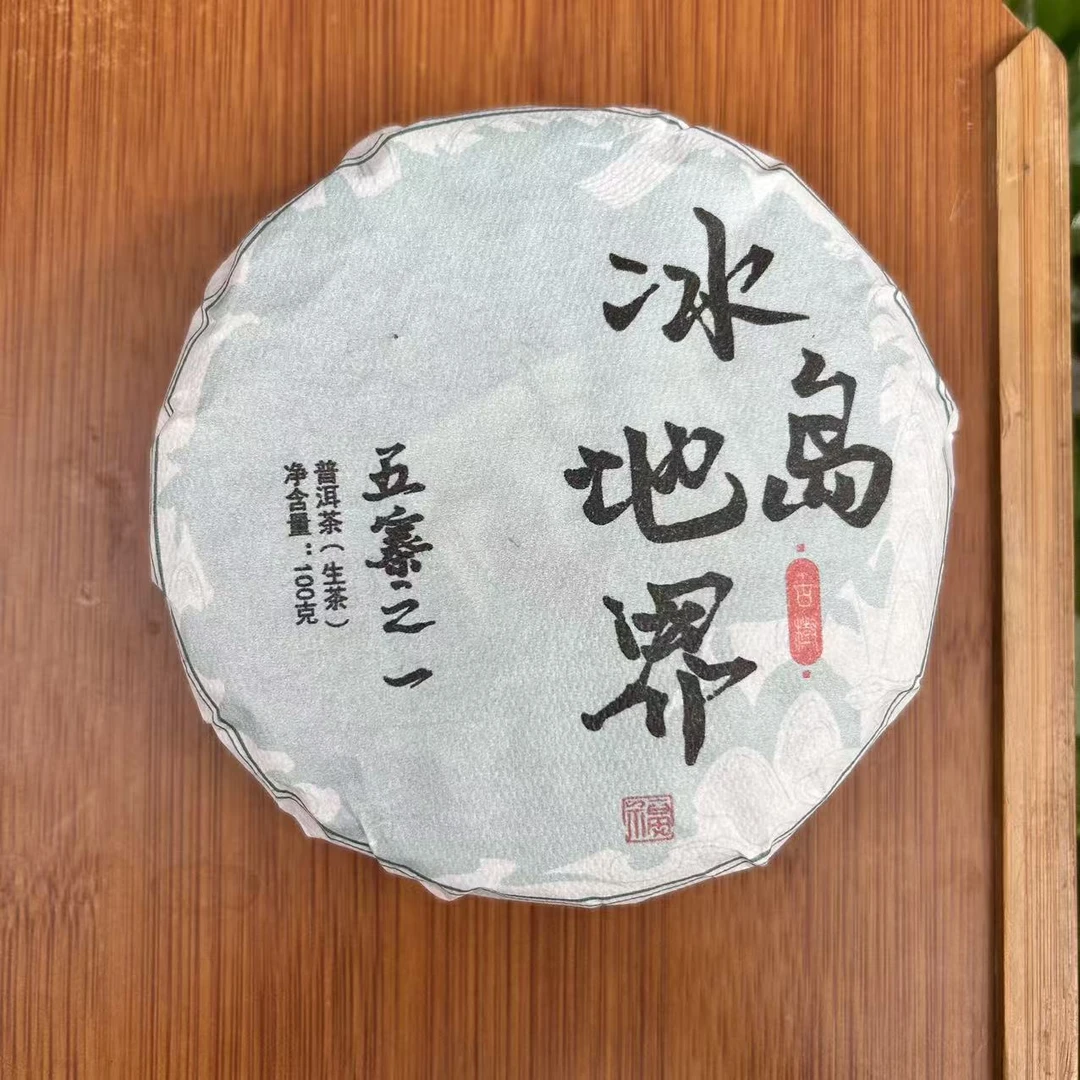 冰岛
地界
古树
福
五寨之一
普洱茶（生茶）
净含量：100克